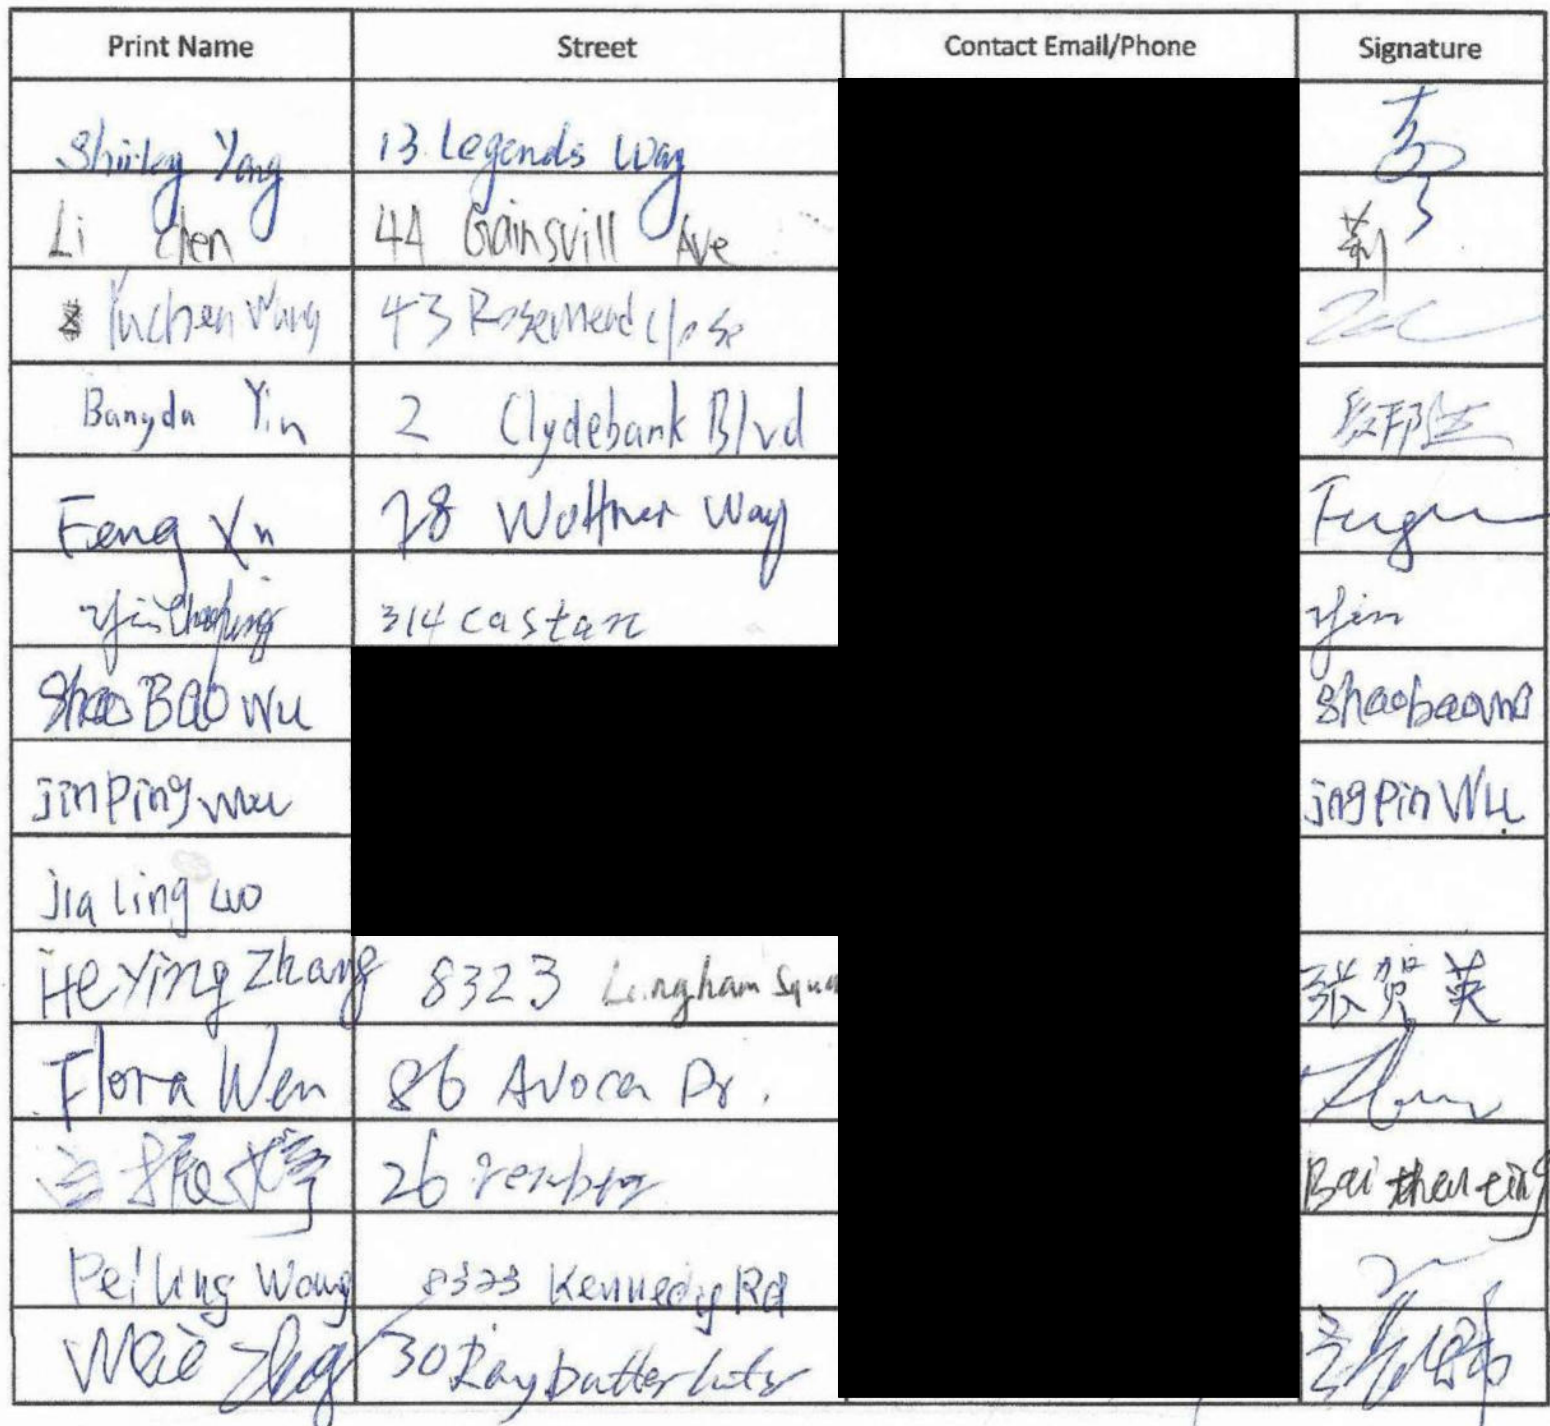 Print Name Street Contact Email/Phone Signature
Shirley Yang 13 Legends Way
Li Chen 44 Gainsvill Ave 莉
Yuchen Wang 43 Rosemead close
Bangda Yin 2 Clydebank Blvd
Feng Xu 78 Way
Yin 314 castan Yin
Shao Bao Wu Shaobaowu
jin Ping wu jng Pin Wu
jia ling wo
He Ying Zhang 8323 Langham Squa 张贺英
Flora Wen 86 Avoca Dr.
26 Bai
Peiling Wong 8323 Kennedy Rd
30 Ray